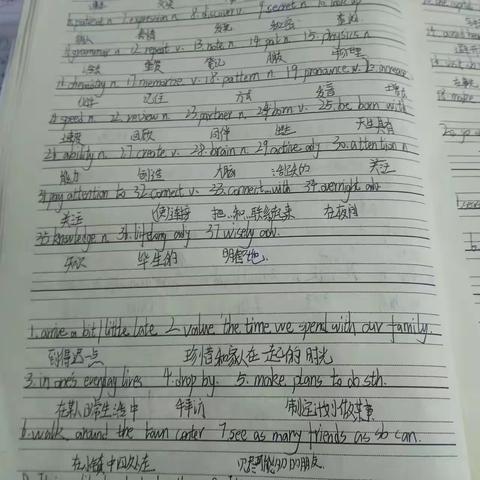 6.patient n. 7.expression n. 8.discover v. 9.secret n. 10.look up
病人 表情 发现 秘密 查阅
11.grammar n. 12.repeat v. 13.note n. 14.pal n. 15.physics n.
语法 重复 笔记 朋友 物理
16.chemistry n. 17.memorize v. 18.pattern n. 19.pronounce v. 20.increase
化学 记住 方式 发音 增加
21.speed n. 22.review n. 23.partner n. 24.born v. 25.be born with
速度 回顾 同伴 出生 天生具有
26.ability n. 27.create v. 28.brain n. 29.active adj 30.attention n
能力 创造 大脑 活跃的 关注
31.pay attention to 32.connect v. 33.connect...with 34.overnight adv.
关注 (使)连接 把...和...联系起来 在夜间
35.knowledge n. 36.lifelong adj 37.wisely adv.
知识 毕生的 明智地.
1.arrive a bit/little late 2.value the time we spend with our family.
到得迟一点 珍惜和家人在一起的时光
3.in one's everyday lives 4.drop by. 5.make plans to do sth.
在某人日常生活中 拜访 制定计划做某事
6.walk around the town center 7.see as many friends as sb can.
在小镇中四处走